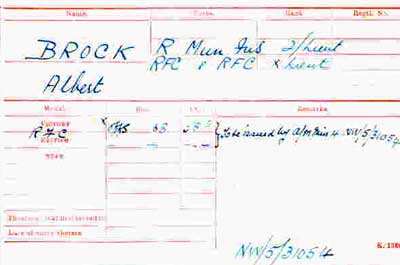 Name. Corps. Rank. Regtl. No.
BROCK R Mun Fus 2/Lieut
RFC & RFC x Lieut
Albert
Medal. Roll. Page. Remarks.
Victory x
RFC
British
Star
To be issued by a/m Ein 4 NW/5/31054
Theatre of War first served in
Date of entry therein
K. 1380
NW/5/31054